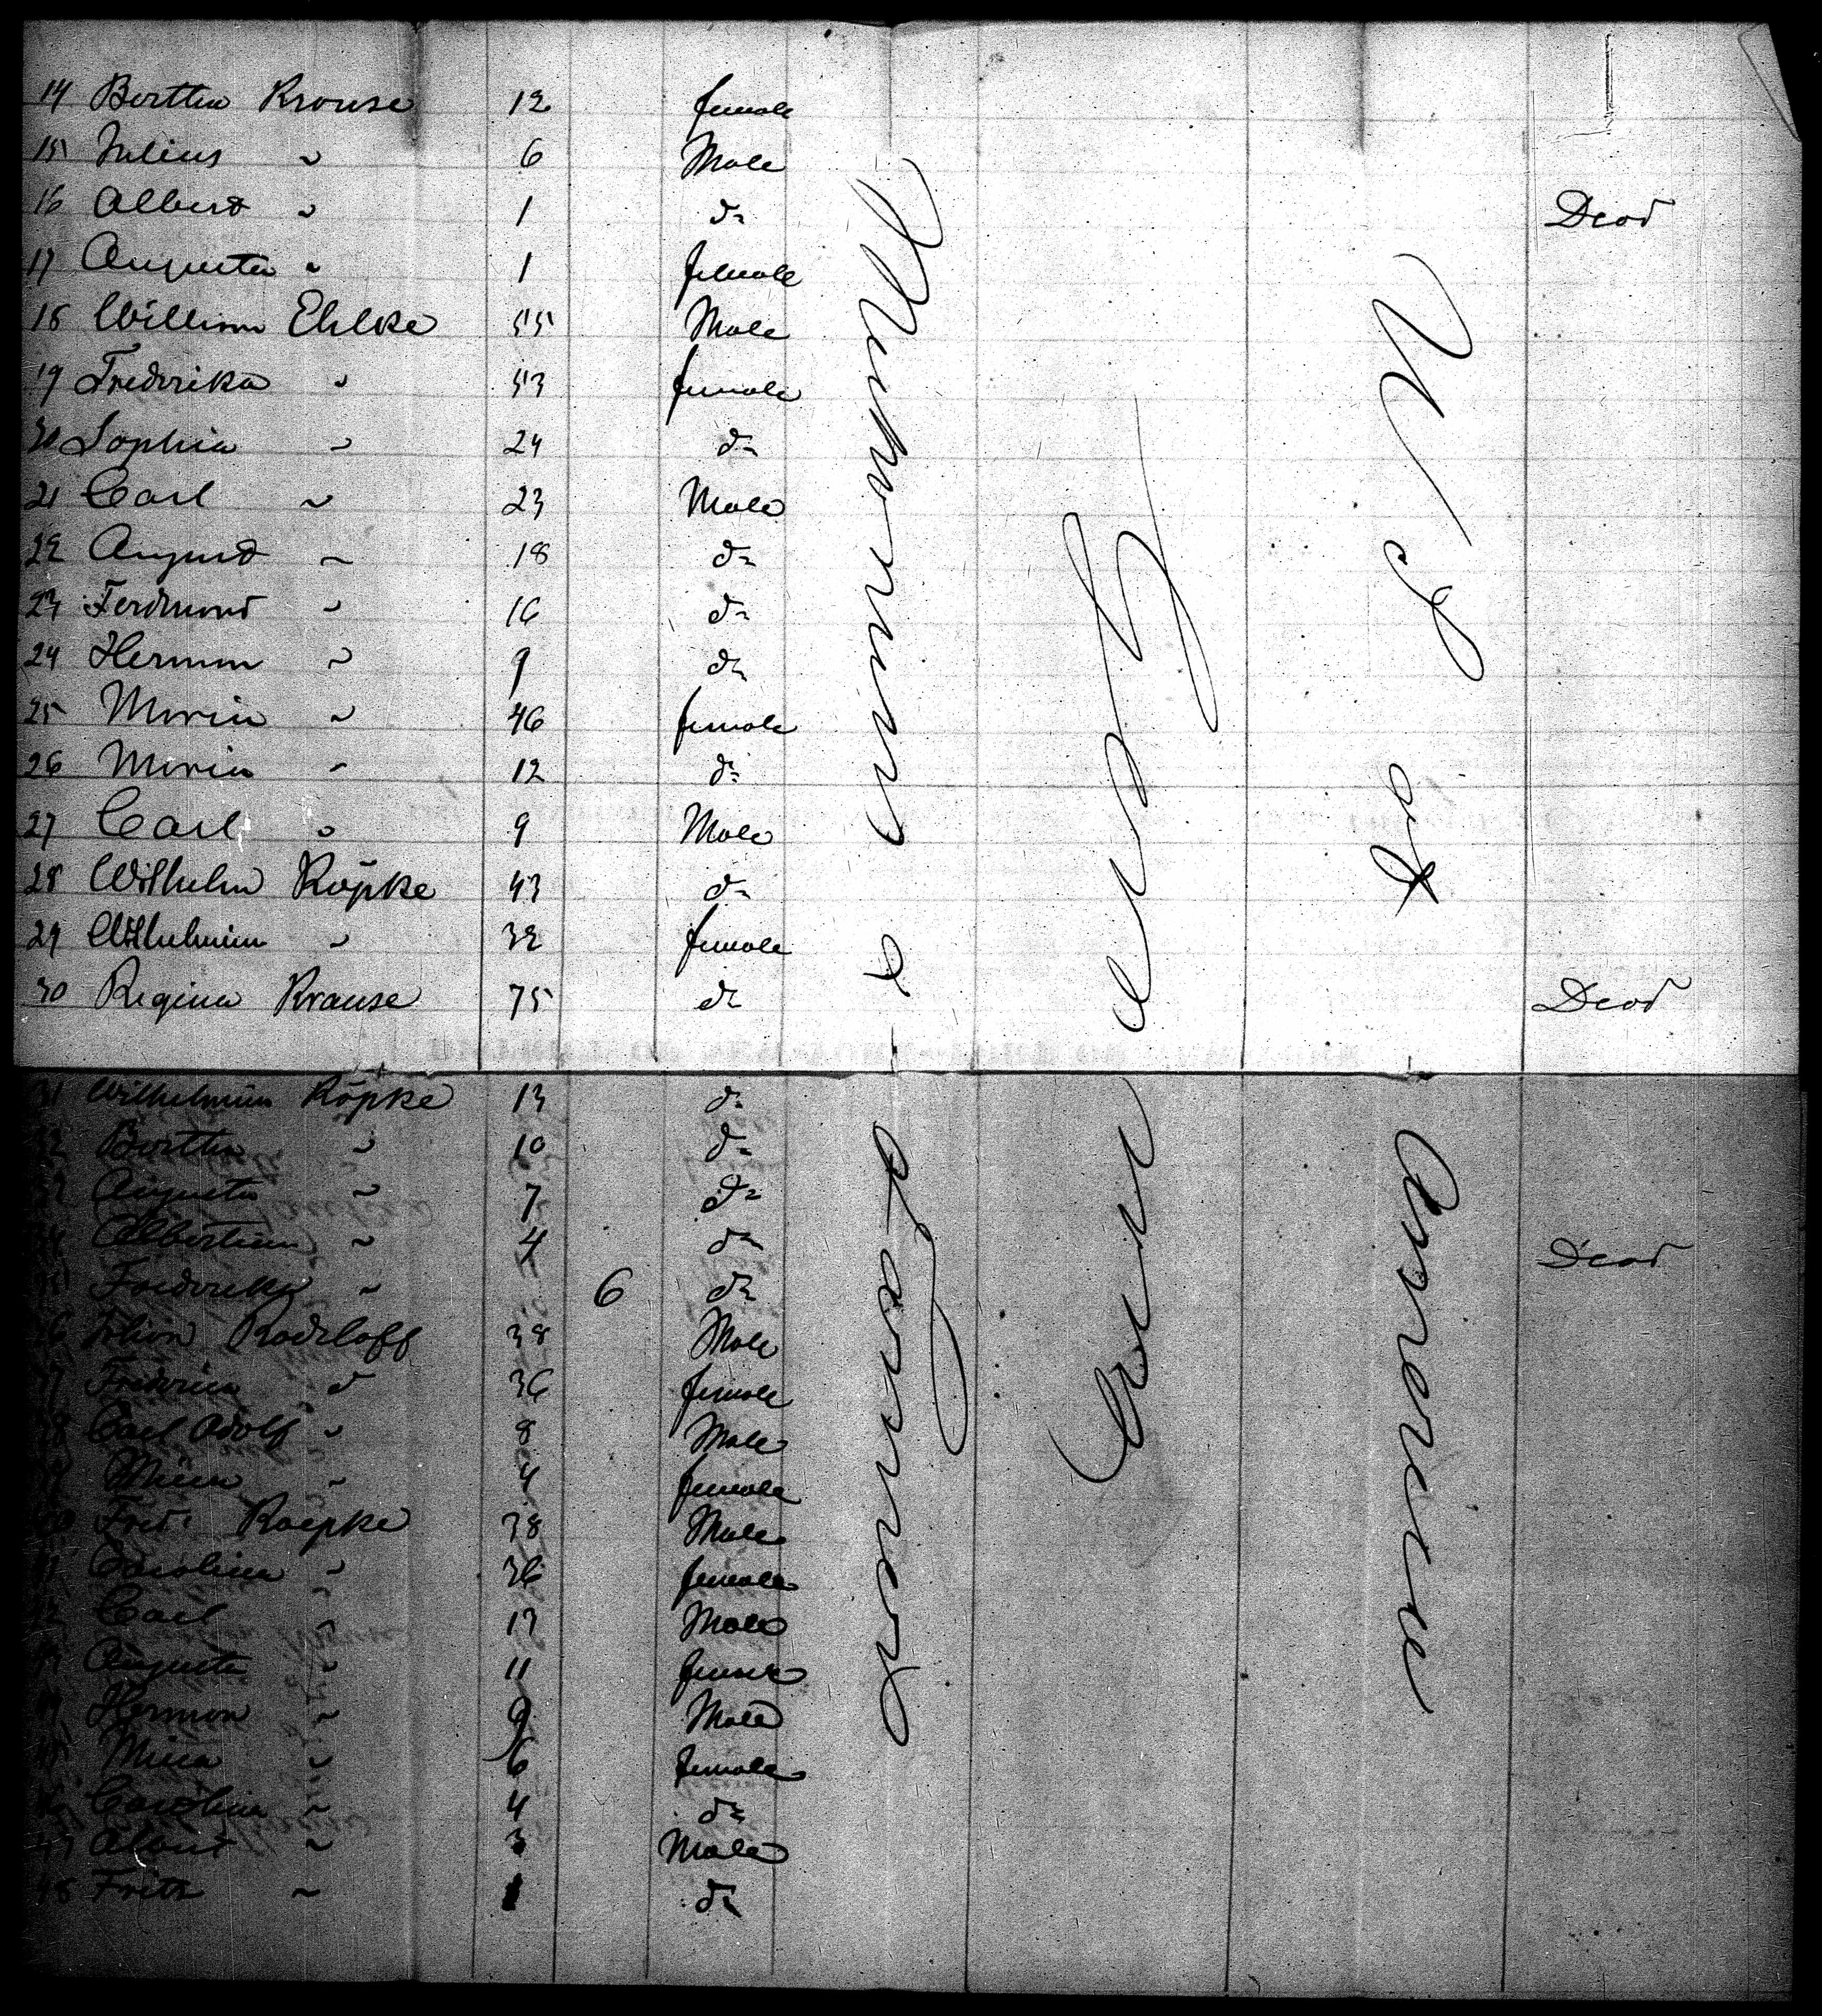 14 Bertha Krause 12 female
15 Julius " 6 Male
16 Albert " 1 do Dead
17 Augusta " 1 female
18 William Ehlke 55 Male
19 Frederika " 53 female
20 Sophia " 24 do
21 Carl " 23 Male
22 August " 18 do
23 Ferdinand " 16 do
24 Herman " 9 do
25 Maria " 46 female
26 Maria " 12 do
27 Carl " 9 Male
28 Wilhelm Röpke 43 do
29 Wilhelmine " 32 female
30 Regina Krause 75 do Dead
31 Wilhelmine Röpke 13 do
32 Bertha " 10 do
33 Augusta " 7 do
34 Albertine " 4 do Dead
35 Frederika " 6 do
36 Radzloff 38 Male
37 Frederica d 36 female
38 Carl Adolf " 8 Male
39 Mina " 4 female
40 Fred. Roepke 38 Male
41 Carolina " 36 female
42 Carl " 13 Male
43 Augusta " 11 female
44 Herman " 9 Male
45 Mina " 6 female
46 Carolina " 4 do
47 Albert " 3 Male
48 Fritz " 1 do
Farmers &
Germany
America U S